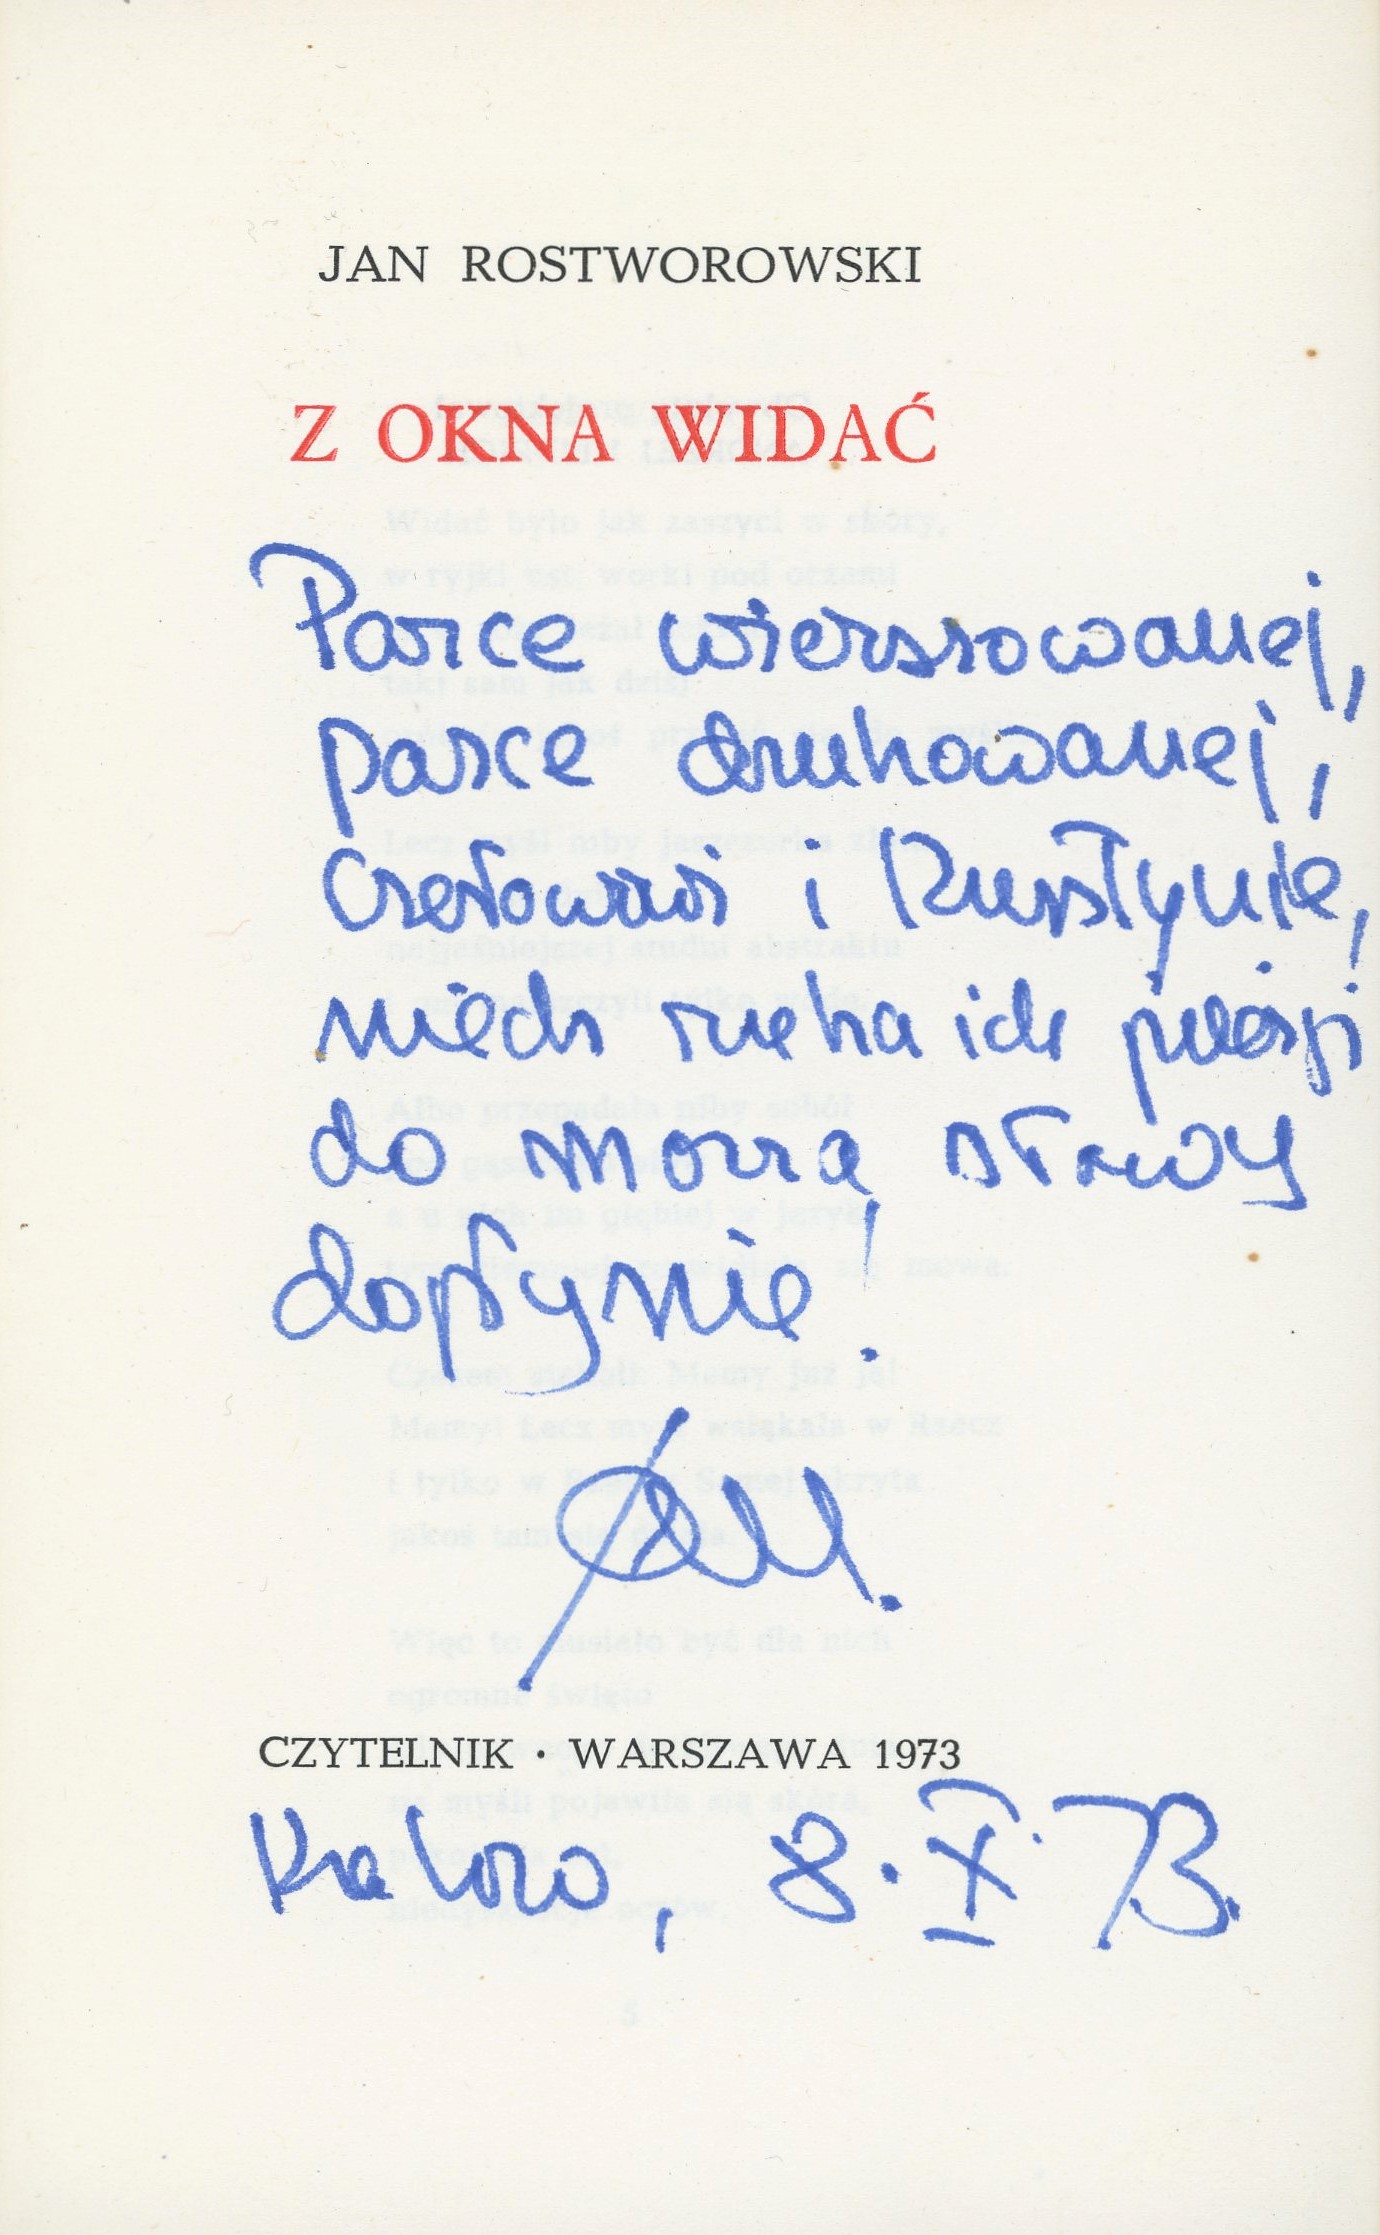 JAN ROSTWOROWSKI
Z OKNA WIDAĆ
Parce wierszowanej,
parce drukowanej,
i Krystynie,
niech rzeka ich poezji
do morza sławy
dopłynie!
CZYTELNIK • WARSZAWA 1973
Kraków, 8.X.73.